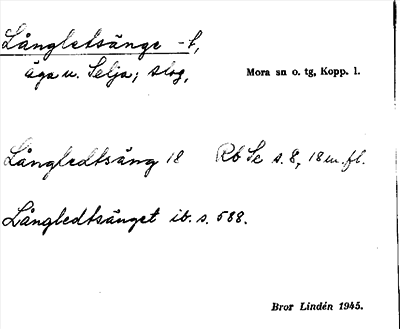 Långletsänge -t,
äga u. Selja; slog, Mora sn o. tg, Kopp. l.
Långledtsäng 18 Rb Se s. 8, 18 m. fl.
Långledtsänget ib. s. 588.
Bror Lindén 1945.